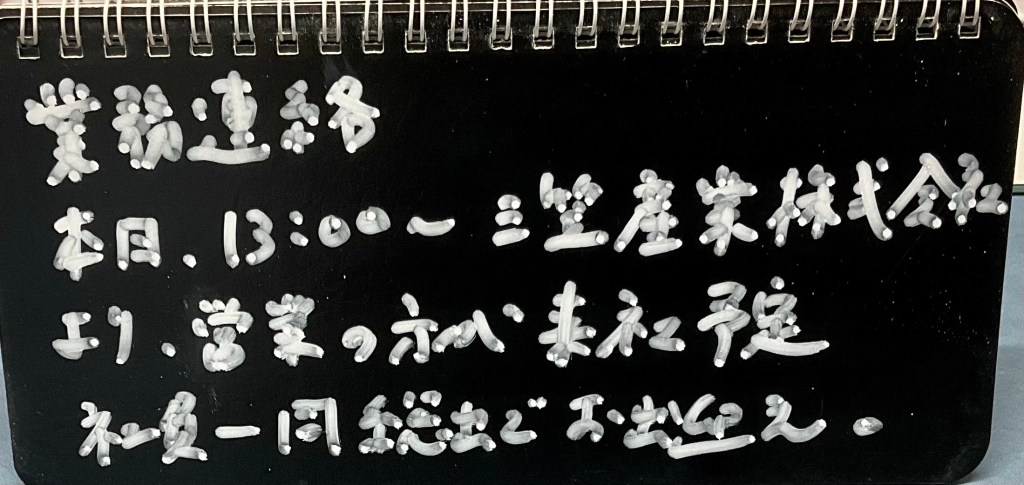 業務連絡
本日、13:00〜 三笠産業株式会社
より、営業の方が来社予定
社員一同総出でお出迎え。